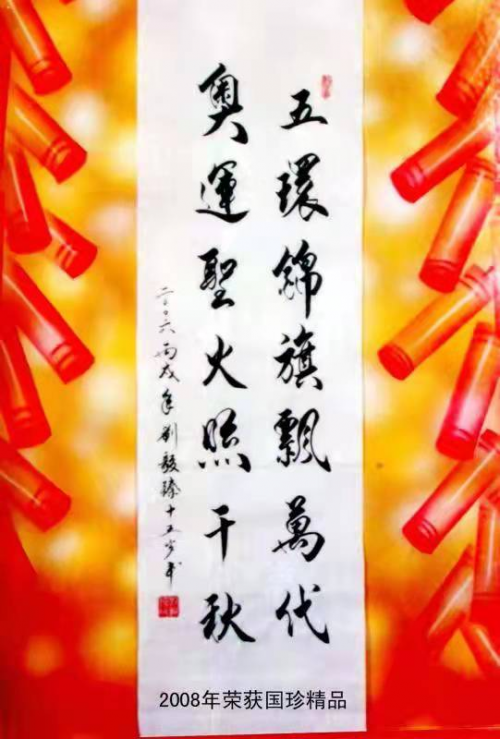 五環錦旗飄萬代
奧運聖火照千秋
二〇〇六丙戌年刘毅臻十五岁书
2008年荣获国珍精品